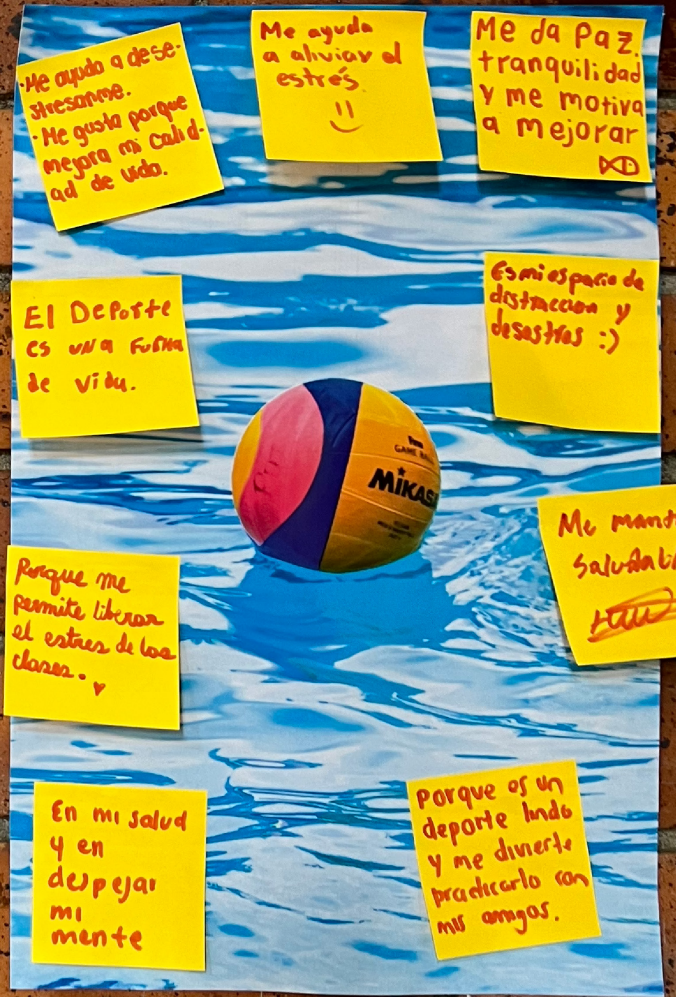 ·Me ayuda a dese-
stresarme.
·Me gusta porque
mejora mi calid-
ad de vida.
Me ayuda
a aliviar el
estrés
Me da Paz,
tranquilidad
y me motiva
a mejorar
El Deporte
es una forma
de vida.
Es mi espacio de
distraccion y
desastres :)
GAME BALL
MIKASA
Me mant
saludabl
Porque me
permite liberar
el estres de las
clases.
En mi salud
y en
despejar
mi
mente
porque es un
deporte lindo
y me divierte
practicarlo con
mis amigos.